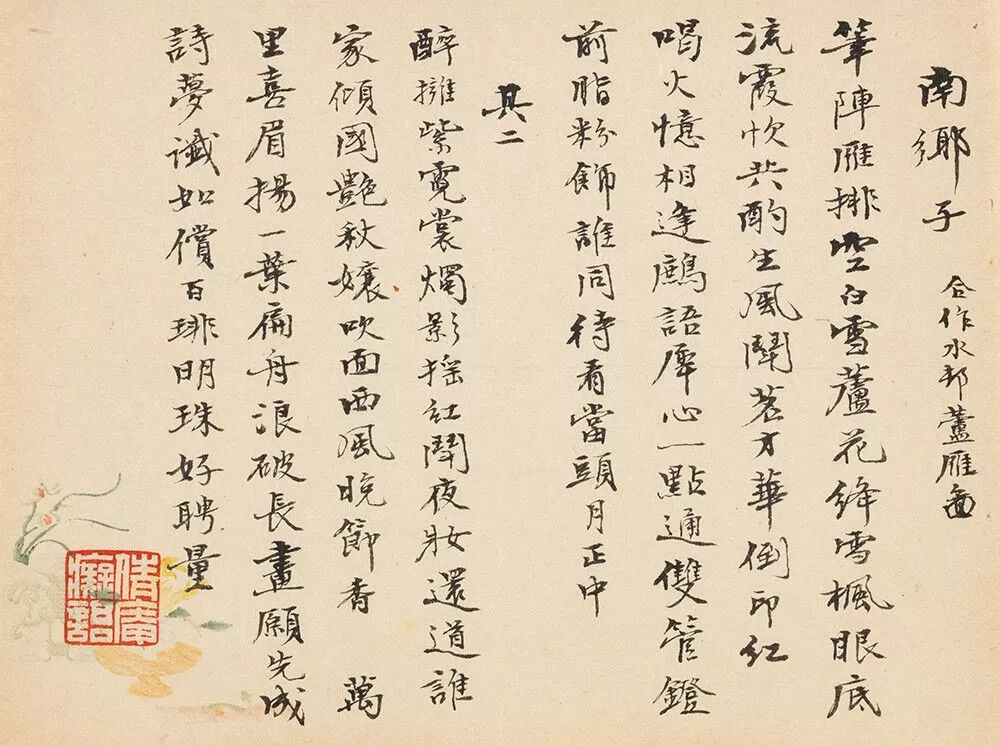 南鄉子 合作水邨蘆雁啚
筆陣雁排空白雪蘆花絳雪楓眼底
流霞忺共酌生風鬪茗才華倒印紅
喝火憶相逢鷓語犀心一點通雙管鐙
前脂粉飾誰同待看當頭月正中
其二
醉擁紫霓裳燭影搖紅鬧夜妝還道誰
家傾國艷秋孃吹面西風晚節香 萬
里喜眉揚一葉扁舟浪破長畫願先成
詩夢讖如償百琲明珠好聘量
倩庵癡語